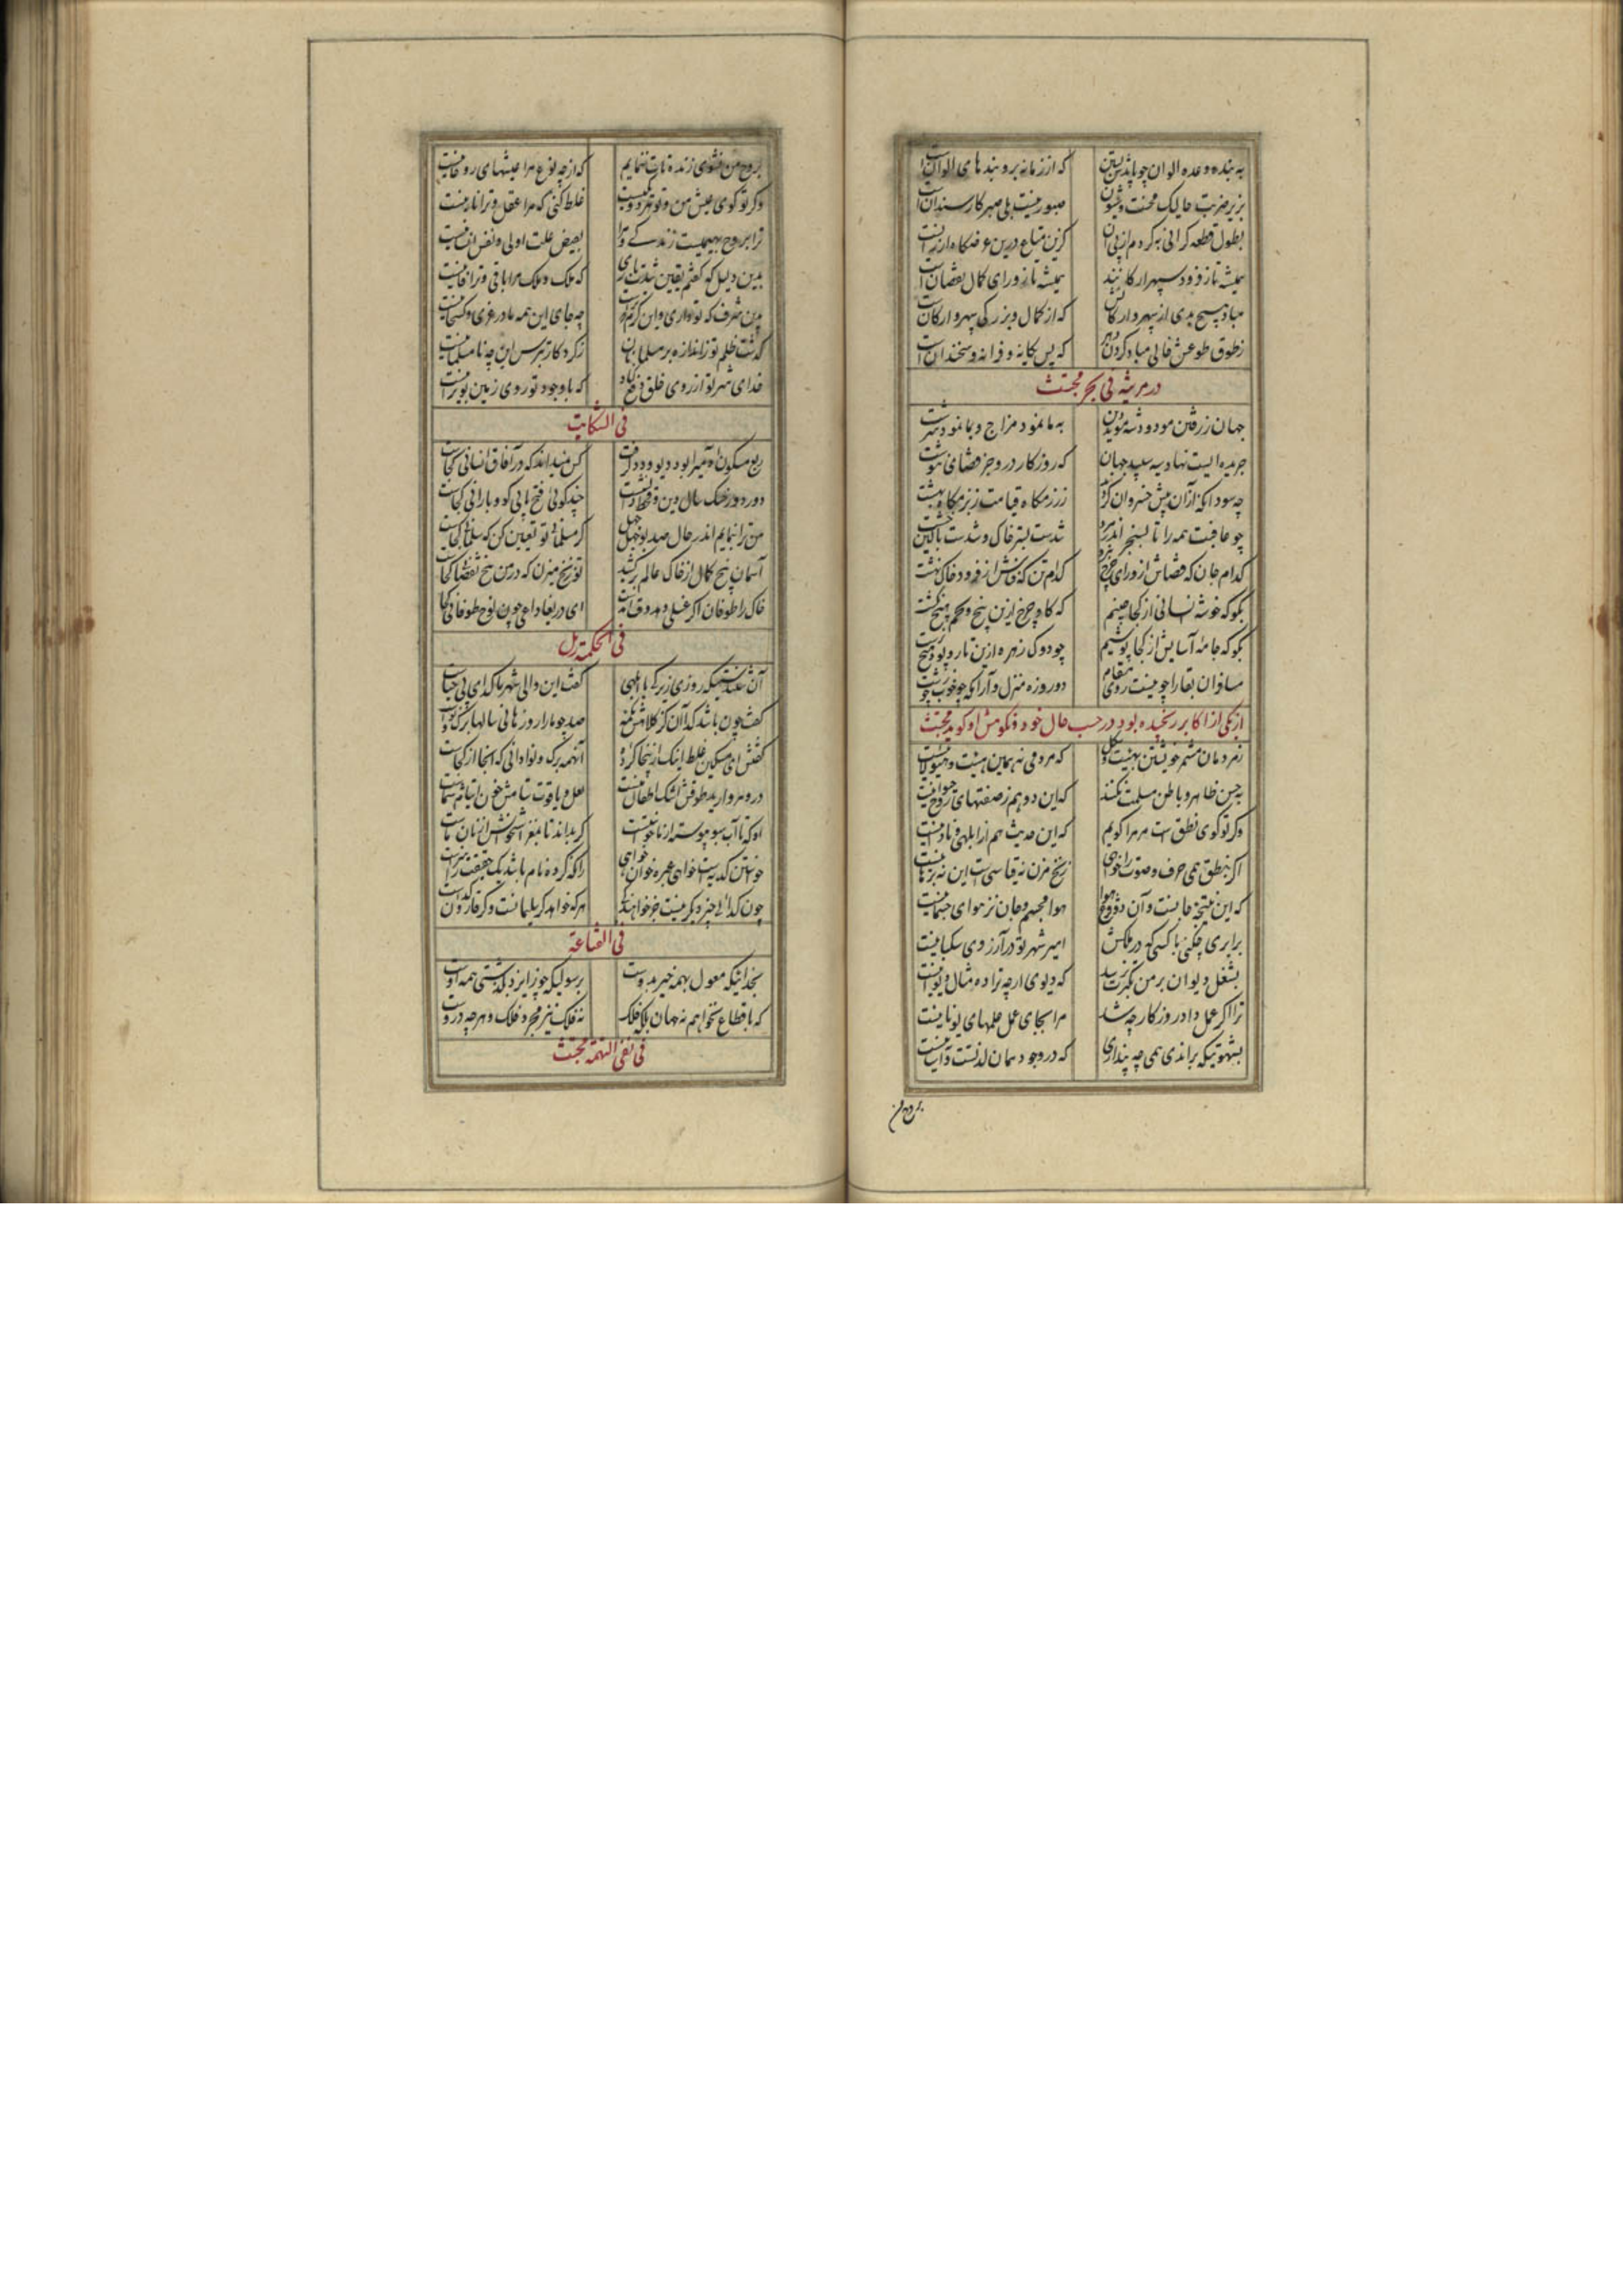 به بنده وعده الوان چو باشدش بستن که از زمانه برو بندهای الوانست
بزیر ضربت خایسک محنت و شیون صبور نیست بلی صبر کار سندانست
بطول قطعه گرانی نه کردم از پی آن کزین متاع درین عرضگاه ارزانست
همیشه تا ز فرود سپهر ارکانند همیشه تا ز ورای کمال نقصانست
مباد هیچ بدی از سپهر و ارکانش که از کمال و بزرگی سپهر و ارکانست
ز طوق طوعش خالی مباد گردن دهر که پس یگانه و فرزانه و سخندانست
در مرثیه فی بحر مجتث
جهان ز رفتن مودود شه مؤیدین به ما نمود مزاج و بما نمود سرشت
جریده ایست نهاد سیه سپید جهان که روزگار درو جز قضای بد ننوشت
چه سود از آنکه ازان پیش خسروان کردند ز رزمگاه قیامت ز بزمگاه بهشت
چو عاقبت همه را تا بسنجر اندر مرو شدست بستر خاک و شدست بالین خشت
کدام جان که قضاش از ورای چرخ نبرد کدام تن که فناش از فرود خاک نهشت
بگو که خوشه نسانی از کجا چینم که گاو چرخ ازین بیخ و تخم هیچ نکشت
بگو که جامه آسایش از کجا پوشیم چو دوک زهره ازین تار و پود هیچ نرشت
مسافران بقا را چو نیست روی مقام دو روزه منزل و آرامگه چه خوب و چه زشت
از یکی از اکابر رنجیده بود در حسب حال خود و نکوهش او گوید مجتث
ز مردمان مشمر خویشتن بهیئت و شکل که مردمی نه همین هیئت و هیولائیست
به حس ظاهر و باطن مسلمت نکنند که این دو هم ز صفتهای روح حیوانیست
وگر تو گوئی نطق است مر مرا گویم که این حدیث هم از ابلهی و نادانیست
اگر بنطق همی حرف و صوت را خواهی زنخ مزن نه قیاسیست این نه برهانیست
که این نتیجه جانست و آن دو زوج هوا هوا مجسم و جان نز هوای جسمانیست
برابری چکنی با کسی که در ملکش امیر شهر تو در آرزوی سگبانیست
بشغل دیوان بر من تکبرت نرسد که دیوی ارچه ترا ده مثال دیوانیست
ترا اگر عمل داد روزگار چه شد مرا بجای عمل علمهای یونانیست
بشهوتیکه براندی همی چه پنداری که در وجود همان لذتست و آسانیست
بروح من
بروح من مشوی زنده تات بنمایم که از چه نوع مرا عیشهای روحانیست
وگر تو گوئی عیش من و تو هر دو یکیست غلط کنی که مرا عقل و ترا مانیست
ترا بروح بهیمیست زندگی و ترا بفیض علت اولی و نفس انسانیست
بدین دلیل که گفتم یقین شدت باری که ملک و ملک مرا باقی و ترا فانیست
بدین شرف که تو داری و این کرم که تراست چه جای این همه مادر غری و کشخانیست
گذشت ظلم تو ز اندازه بر مسلمانان ز کردگار بترس این چه نامسلمانیست
خدای شر تو از روی خلق دفع کناد که با وجود تو روی زمین بویرانیست
فی الشکایت
ربع مسکون آدمی را بود دیو و دد گرفت کس نمیداند که در آفاق انسانی کجاست
دور دور خشک سال دین و قحط دانش است چند گوئی فتح بابی کو و بارانی کجاست
من ترا بنمایم اندر حال صد بوجهل جهل گر مسلمانی تو تعیین کن که سلمانی کجاست
آسمان بیخ کمال از خاک عالم بر کشید تو زنخ میزن که در من گنج نقصانی کجاست
خاک را طوفان اگر غسلی دهد وقت آمدست ای دریغا داعی چون نوح طوفانی کجا
فی الحکمة رمل
آن شنیدستیکه روزی زیرکی با ابلهی گفت این والی شهر ما گدای بی حیاست
گفت چون باشد گدا آن کز کلاهش تکمه صد چو ما را روزها نی سالها برگ و نواست
گفتش ای مسکین غلط اینک ازینجا کرده آنهمه برگ و نوا دانی که آنجا از کجاست
در و مروارید طوقش اشک اطفال منست لعل و یاقوت ستامش خون ایتام شماست
او که تا آب سبو پیوسته از ما خواستست گر بداند تا بمغز استخوانش از نان ماست
خواستن کدیه است خواهی عشر خوان خواهی خراج زانکه گر ده نام باشد یک حقیقت را رواست
چون گدائی چیز دیگر نیست جز خواهندگی هر که خواهد گر سلیمانست و گر قارون گداست
فی القناعة
بخدائیکه معول بهمه خیر بدوست برسولیکه چو ز ایزد بگذشتی همه اوست
که باقطاع نخواهم نه جهان بلکه فلک نه فلک نیز مجرد فلک و هر چه دروست
فی نفی التهمة مجتث